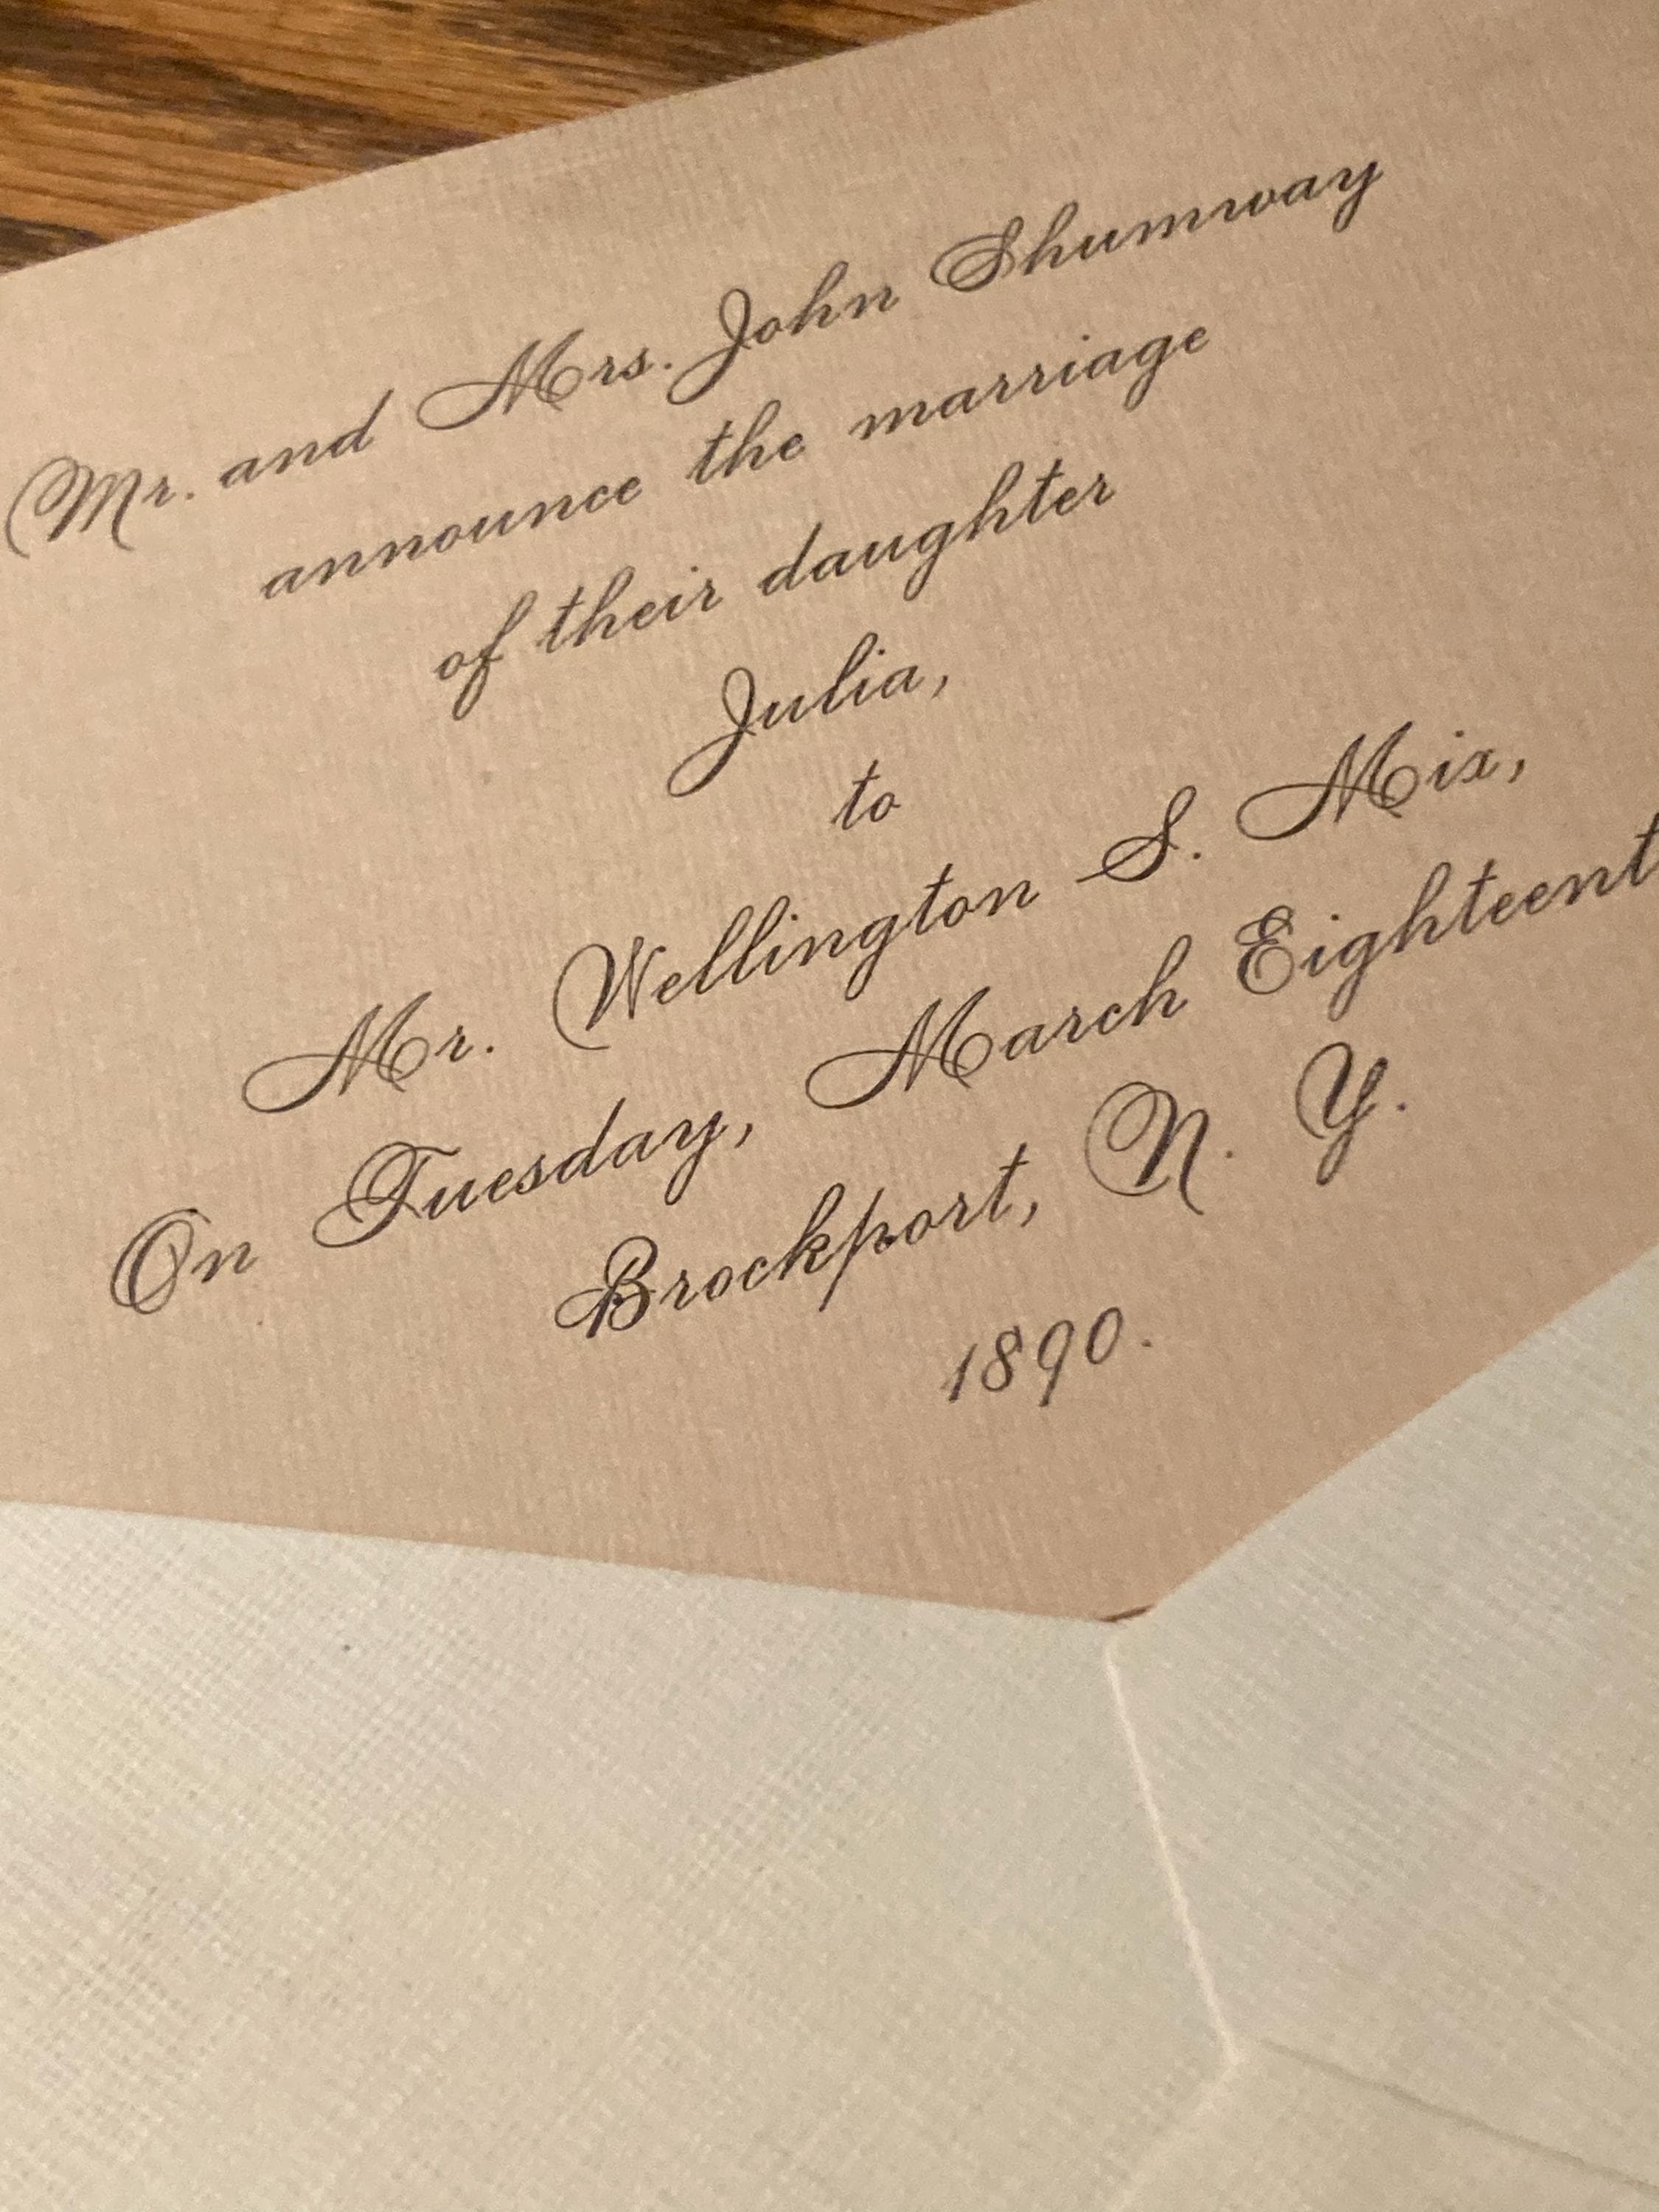 Mr. and Mrs. John Shumway
announce the marriage
of their daughter
Julia,
to
Mr. Wellington S. Mix,
On Tuesday, March Eighteent
Brockport, N. Y.
1890.